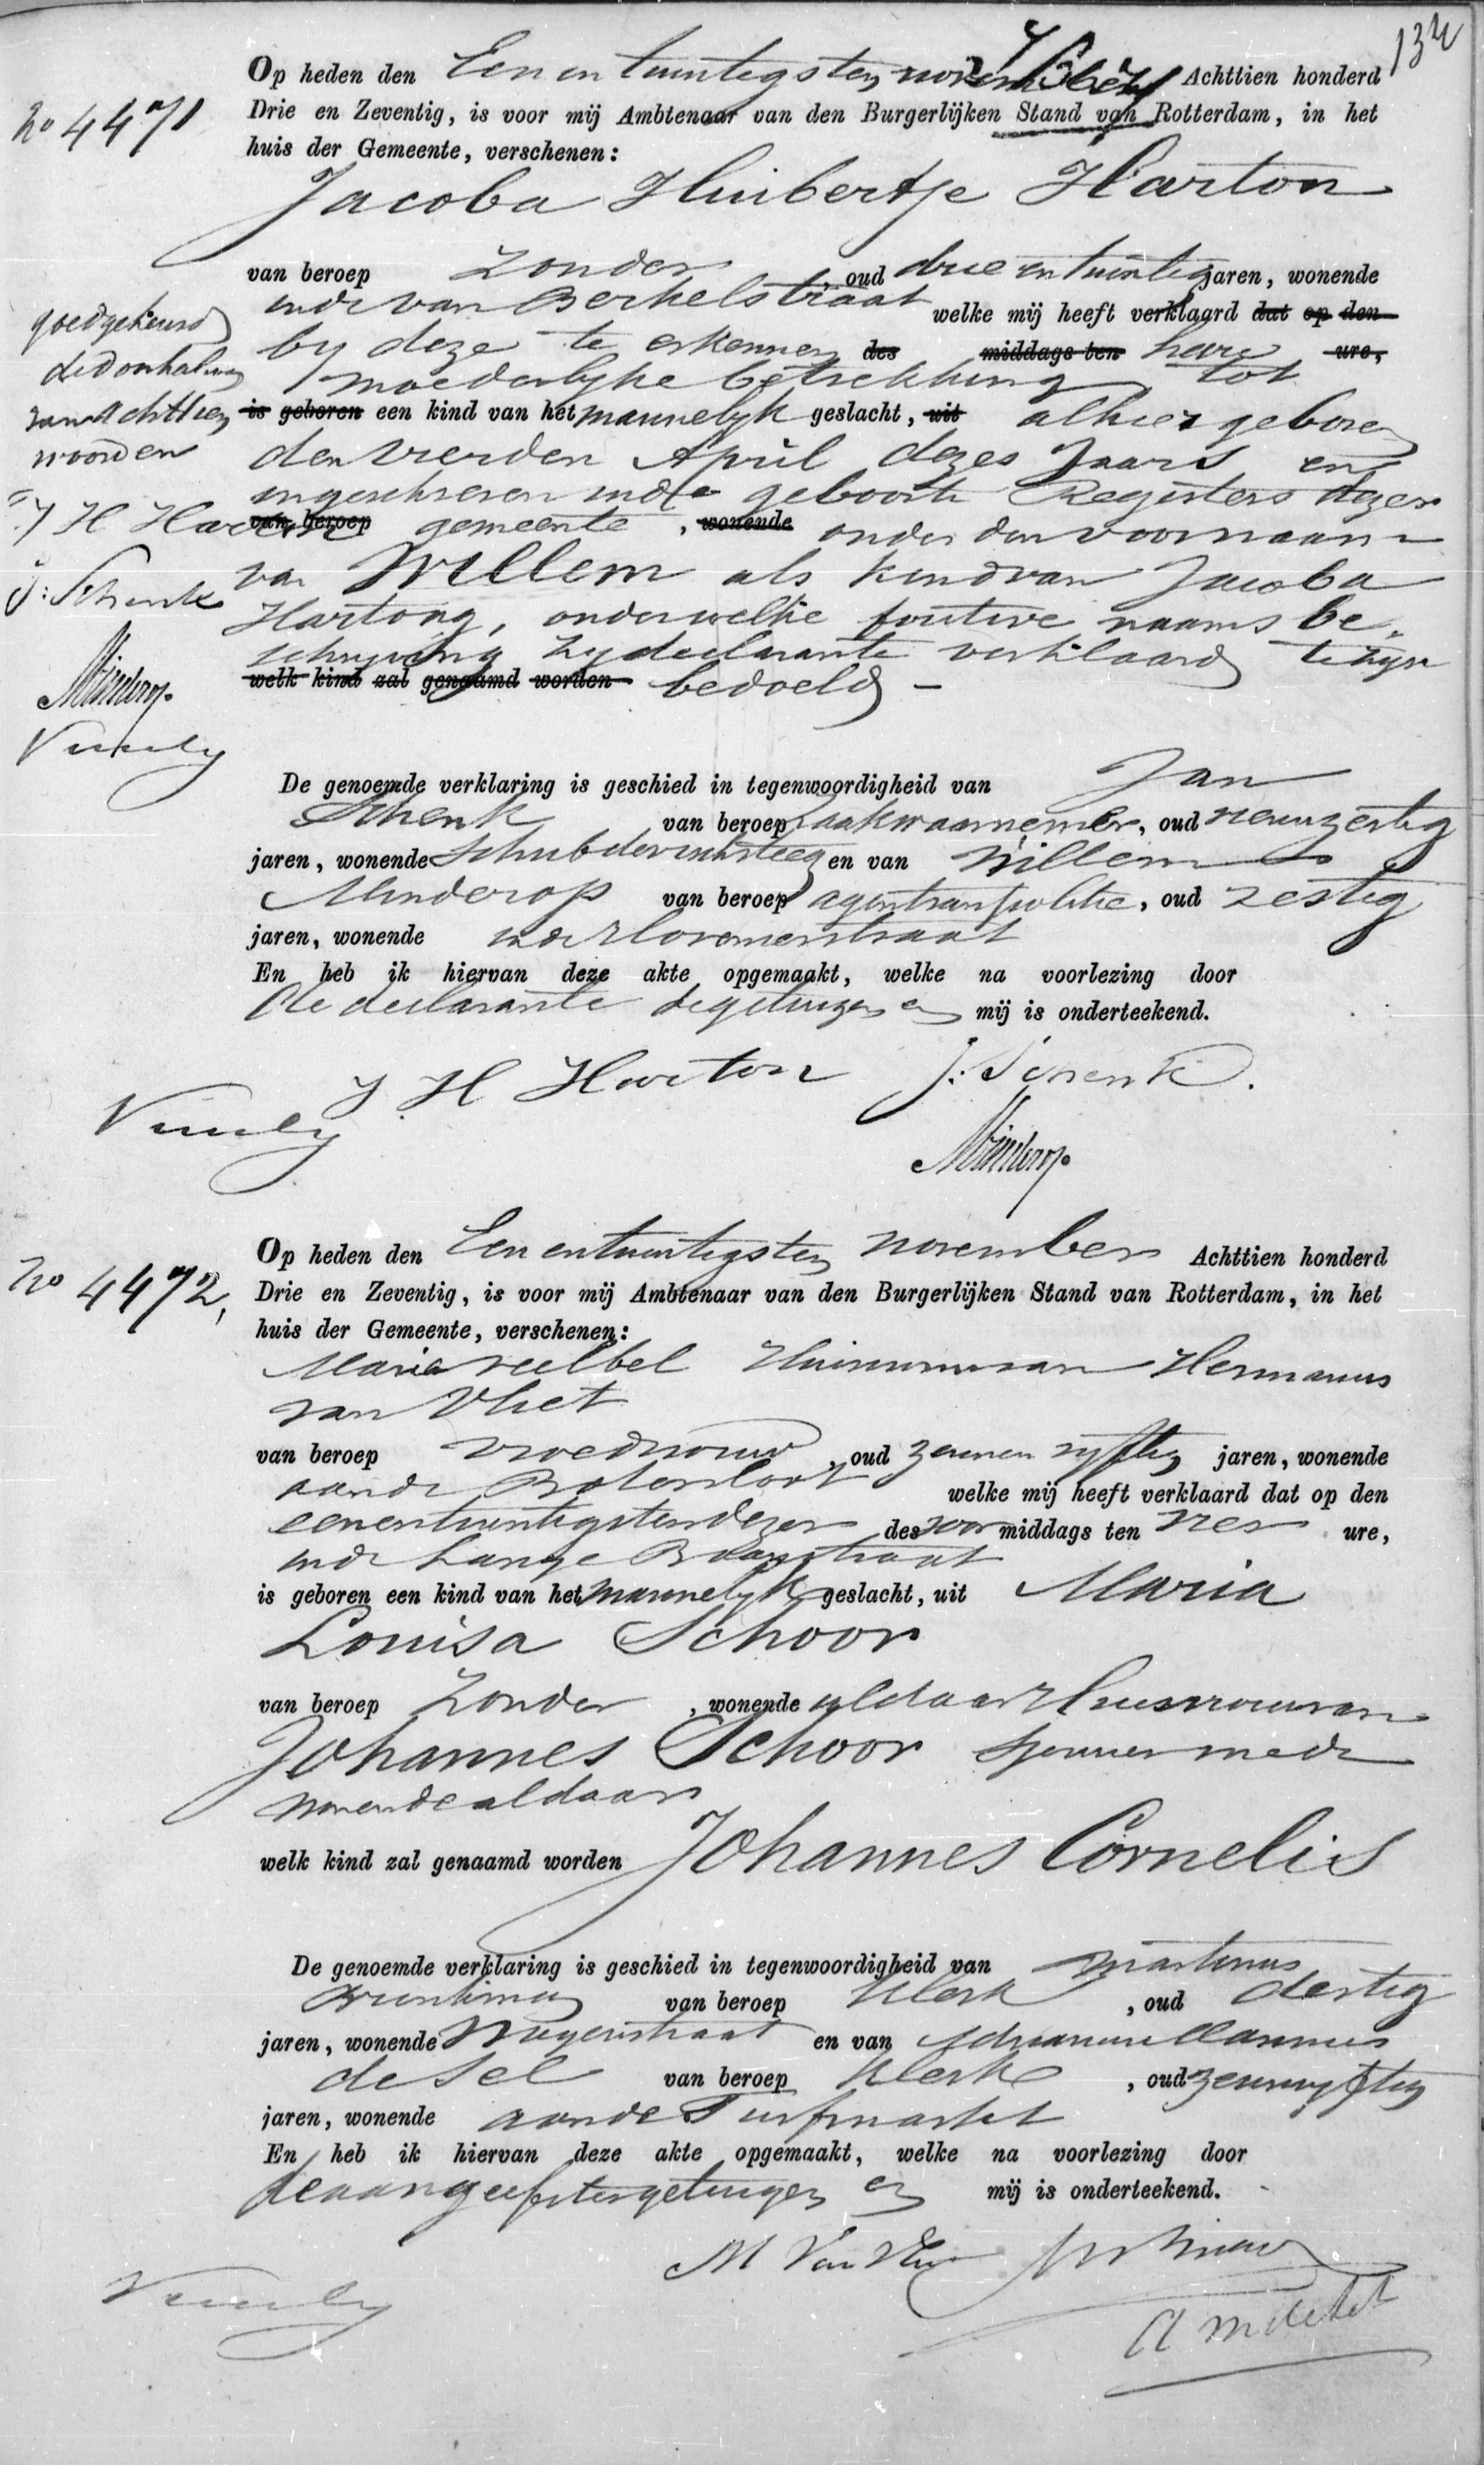 132
No 4471
Op heden den Een en twintigsten november Achttien honderd
Drie en Zeventig, is voor mij Ambtenaar van den Burgerlijken Stand van Rotterdam, in het
huis der Gemeente, verschenen:
Jacoba Huibertje Harton
van beroep Zonder, oud drie en twintig jaren, wonende
inde van Berkelstraat welke mij heeft verklaard dat op den
by deze te erkennen des middags ten hare ure,
moederlyke betrekking tot
is geboren een kind van het mannelyk geslacht, uit alhier geboren
den vierden April dezes Jaars en
ingeschreven inde geboorte Registers dezer
van beroep gemeente, wonende onder den voornaam
van Willem als kind van Jacoba
Hartong, onder welke foutive naamsbe-
schryving zy declarante verklaard te zyn
welk kind zal genaamd worden bedoeld
goedgekeurd
de doorhaling
van Achttien
woorden
J H Harton
J: Schenk
Minderop
De genoemde verklaring is geschied in tegenwoordigheid van Jan
Schenk van beroep Zaakwaarnemer, oud negenzestig
jaren, wonende en van Willem
Minderop van beroep agent van politie, oud zestig
jaren, wonende inde
En heb ik hiervan deze akte opgemaakt, welke na voorlezing door
de declarante de getuigen en mij is onderteekend.
J H Harton J: Schenk.
Minderop
No 4472,
Op heden den Een en twintigsten november Achttien honderd
Drie en Zeventig, is voor mij Ambtenaar van den Burgerlijken Stand van Rotterdam, in het
huis der Gemeente, verschenen:
Maria Huisvrouw van Hermanus
van Vliet
van beroep vroedvrouw, oud zeven en vyftig jaren, wonende
aande Botersloot welke mij heeft verklaard dat op den
een en twintigsten dezer des voor middags ten vier ure,
inde Lange
is geboren een kind van het mannelyk geslacht, uit Maria
Louisa Schoor
van beroep Zonder, wonende aldaar Huisvrouw van
Johannes Schoor mede
wonende aldaar
welk kind zal genaamd worden Johannes Cornelis
De genoemde verklaring is geschied in tegenwoordigheid van Martinus
van beroep klerk, oud dertig
jaren, wonende en van
de Sel van beroep klerk, oud zevenvyftig
jaren, wonende aande Turfmarkt
En heb ik hiervan deze akte opgemaakt, welke na voorlezing door
de aangeefster getuigen en mij is onderteekend.
M Van Vliet